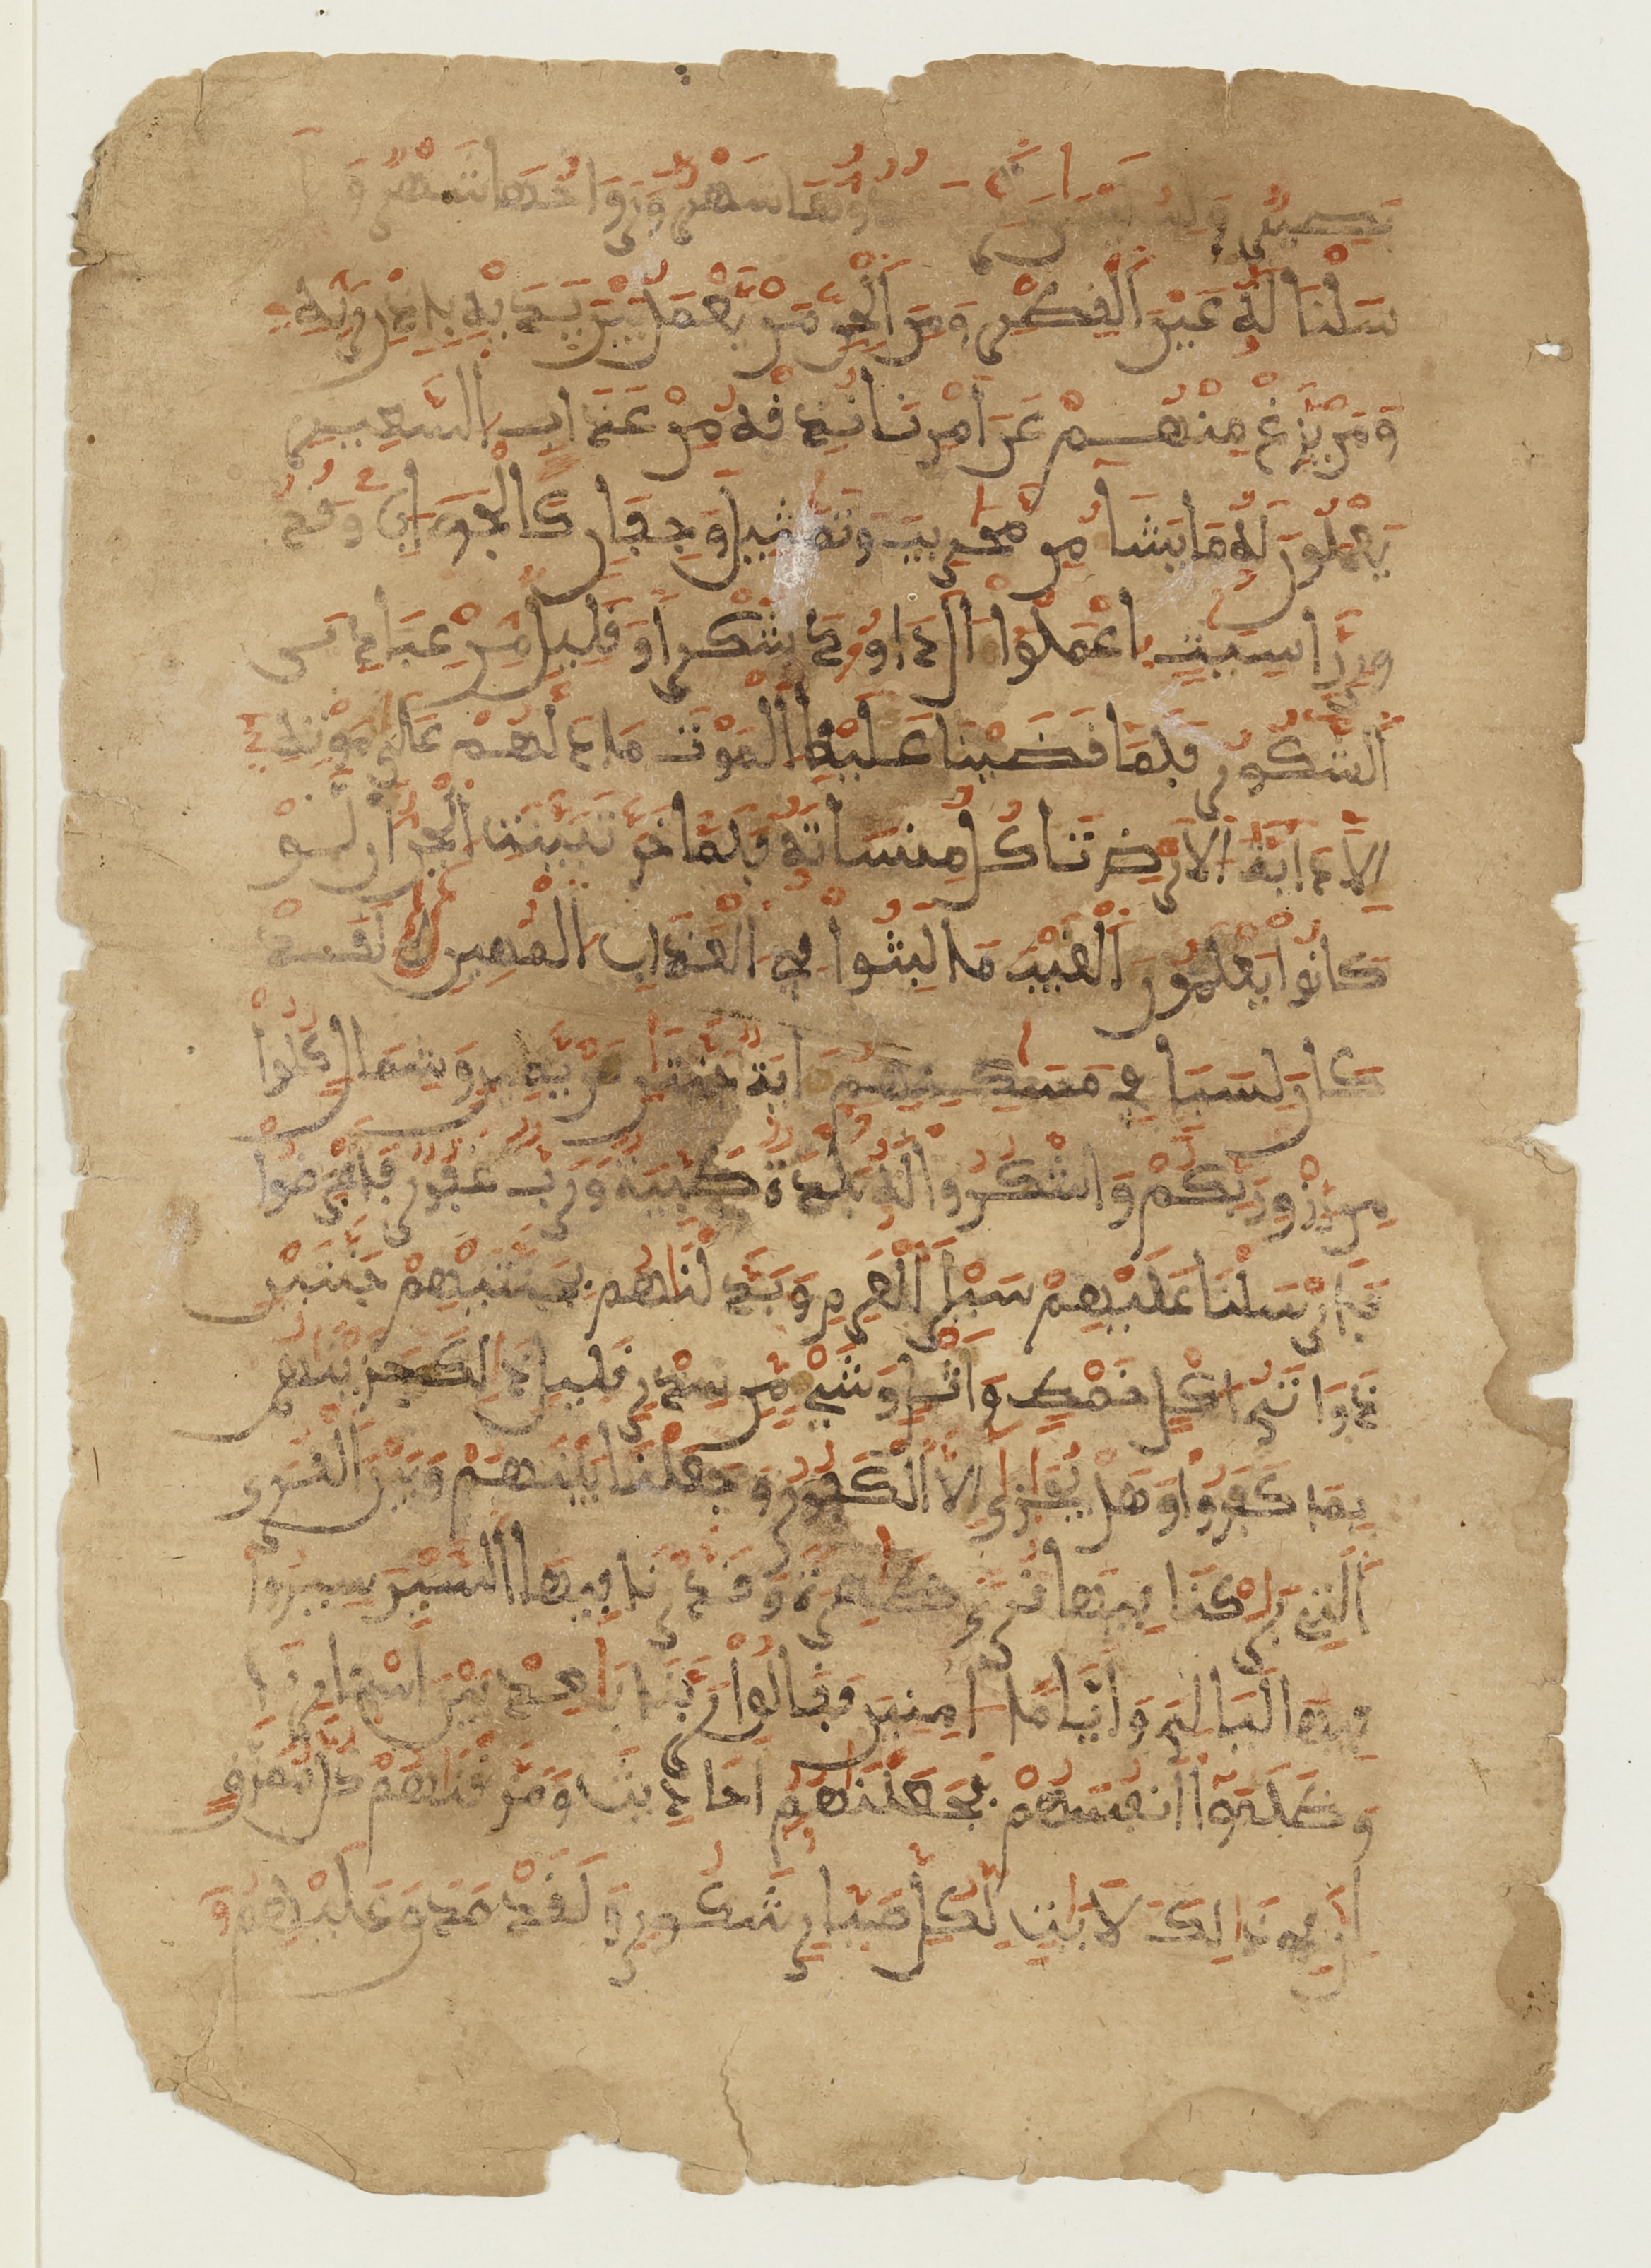 بصير ولسليمن الريح غدوها شهر ورواحها شهر وأ
سلنا له عين القطر ومن الجن من يعمل بين يديه باذن ربه
ومن يزغ منهم عن امرنا نذقه من عذاب السعير
يعملون له ما يشا من محريب وتمثيل وجفان كالجواب وقد
ور راسيت اعملوا ال داوود شكرا وقليل من عبادي
الشكور فلما قضينا عليه الموت ما دلهم على موته
الا دابة الارض تاكل منساته فلما خر تبينت الجن ان لو
كانوا يعلمون الغيب ما لبثوا في العذاب المهين لقد
كان لسبا في مسكنهم اية جنتن عن يمين وشمال كلوا
من رزق ربكم واشكروا له بلدة طيبة ورب غفور فاعرضوا
فارسلنا عليهم سيل العرم وبدلناهم بجنتيهم جنتين
ذواتى اكل خمط واثل وشي من سدر قليل ذالك جزيناهم
بما كفروا وهل يجازى الا الكفور وجعلنا بينهم وبين القرى
التي باركنا فيها قرى ظاهرة وقدرنا فيها السير سيروا
فيها ليالي واياما امنين فقالوا ربنا باعد بين اسفارنا
وظلموا انفسهم فجعلناهم احاديث ومزقناهم كل ممزق
ان في ذالك لايات لكل صبار شكور ولقد صدق عليهم و